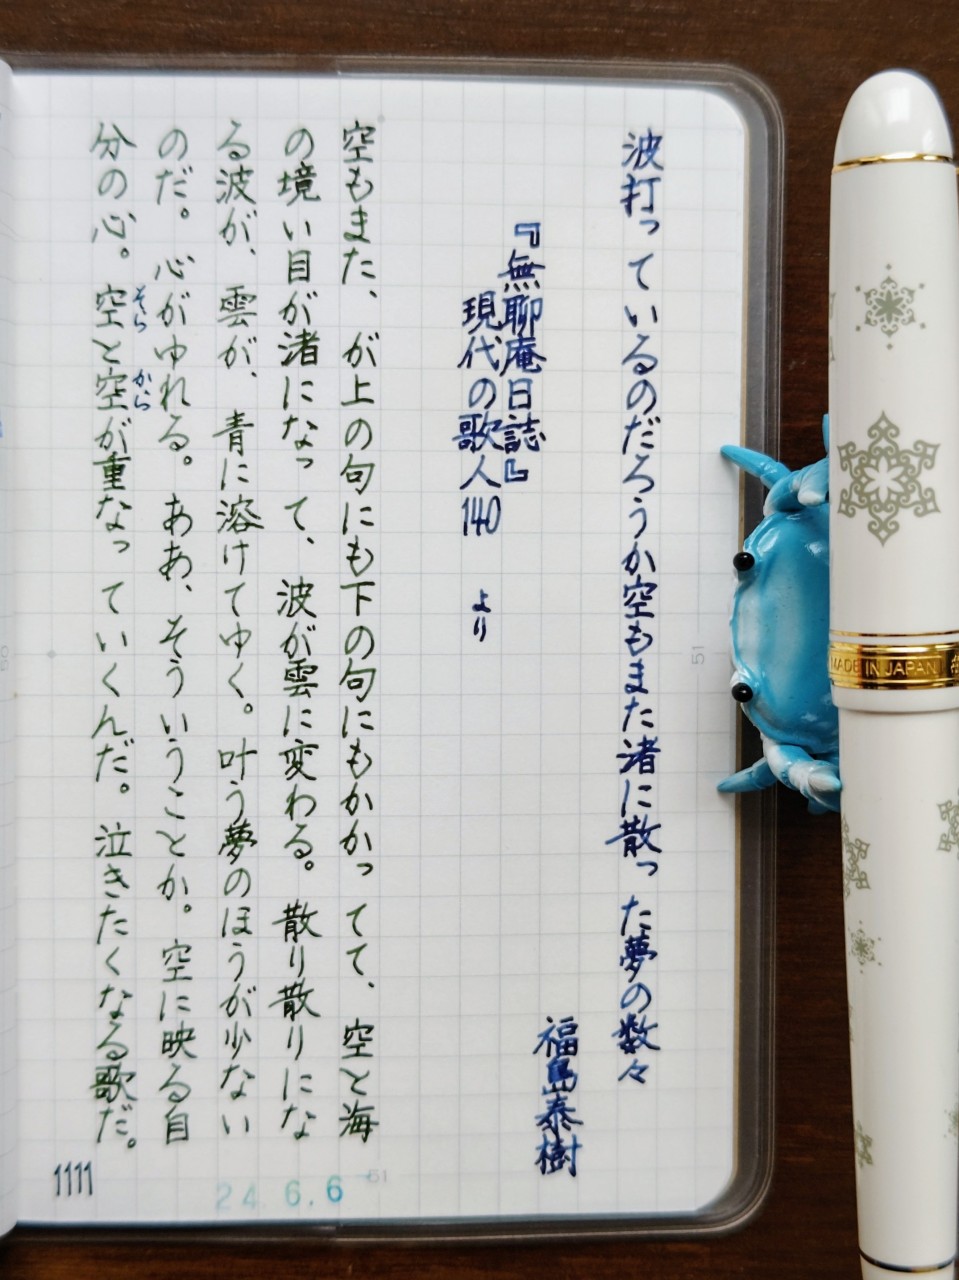 波打っているのだろうか空もまた渚に散った夢の数々
福島泰樹
『無聊庵日誌』
現代の歌人140 より
空もまた、が上の句にも下の句にもかかってて、空と海
の境い目が渚になって、波が雲に変わる。散り散りにな
る波が、雲が、青に溶けてゆく。叶う夢のほうが少ない
のだ。心がゆれる。ああ、そういうことか。空に映る自
分の心。空と空が重なっていくんだ。泣きたくなる歌だ。
そら から
1111
24.6.6
51
51
MADE IN JAPAN